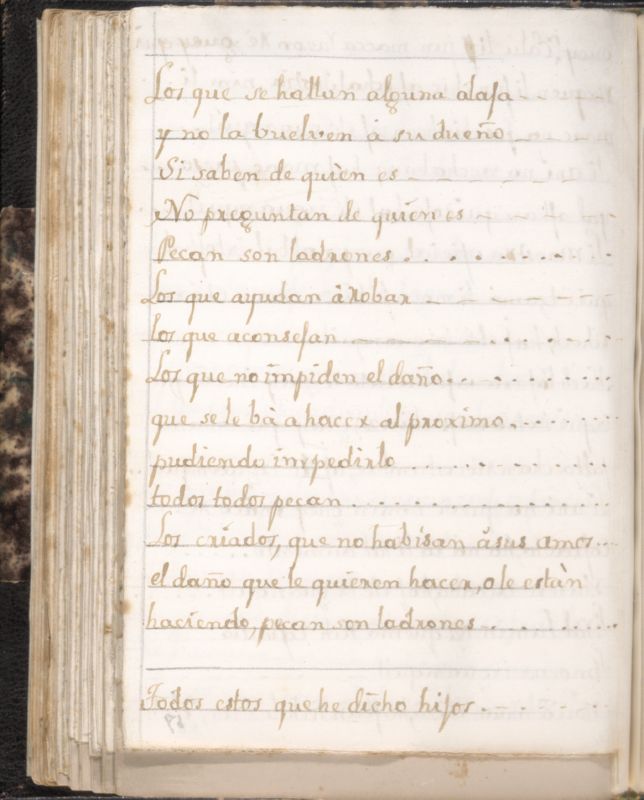 Los que se hallan alguna alaja - - -
y no la buelven â su dueño - - -
Si saben de quien es - - - - -
No preguntan de quien es - - - -
Pecan son ladrones . . . . . . . .
Los que ayudan â robar - - - - -
los que aconsejan - - - . . . . . .
Los que no impiden el daño . . . . . .
que se le bà a hacer al proximo . . . . . .
pudiendo impedirlo . . . . . . .
todos todos pecan . . . . . . . . .
Los criados, que no habisan âsus amos . . .
el daño que le quieren hacer, o le estàn
haciendo, pecan son ladrones . . . . . .
Todos estos que he dicho hijos . . . . .